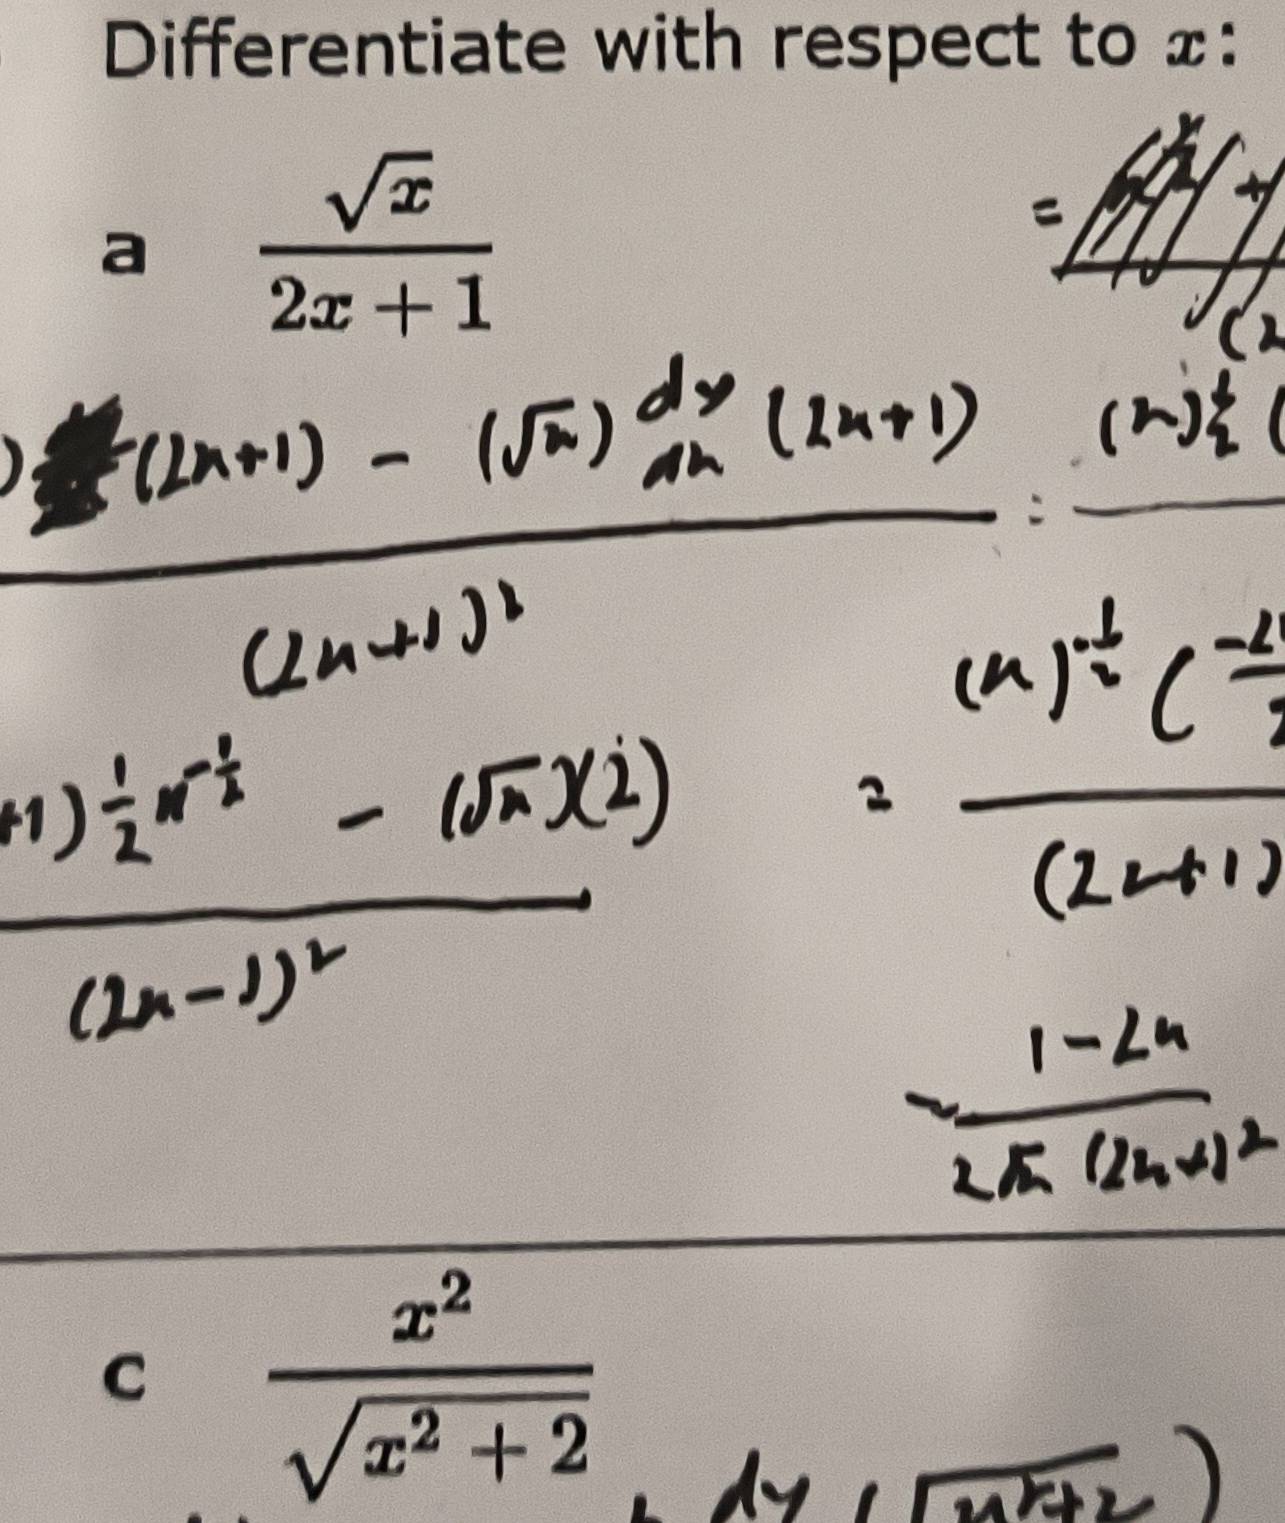 Differentiate with respect to x:
a √x / (2x + 1)
=
(2
) (2x+1) - (√x) dy/dx (2x+1) / (2x+1)² = (x)½ (
+1) ½ x^-½ - (√x)(2) / (2x-1)²
= (x)^-½ ( / (2x+1)
1-2x / 2√x (2x+1)²
c x² / √(x² + 2)
dy (√x²+2)